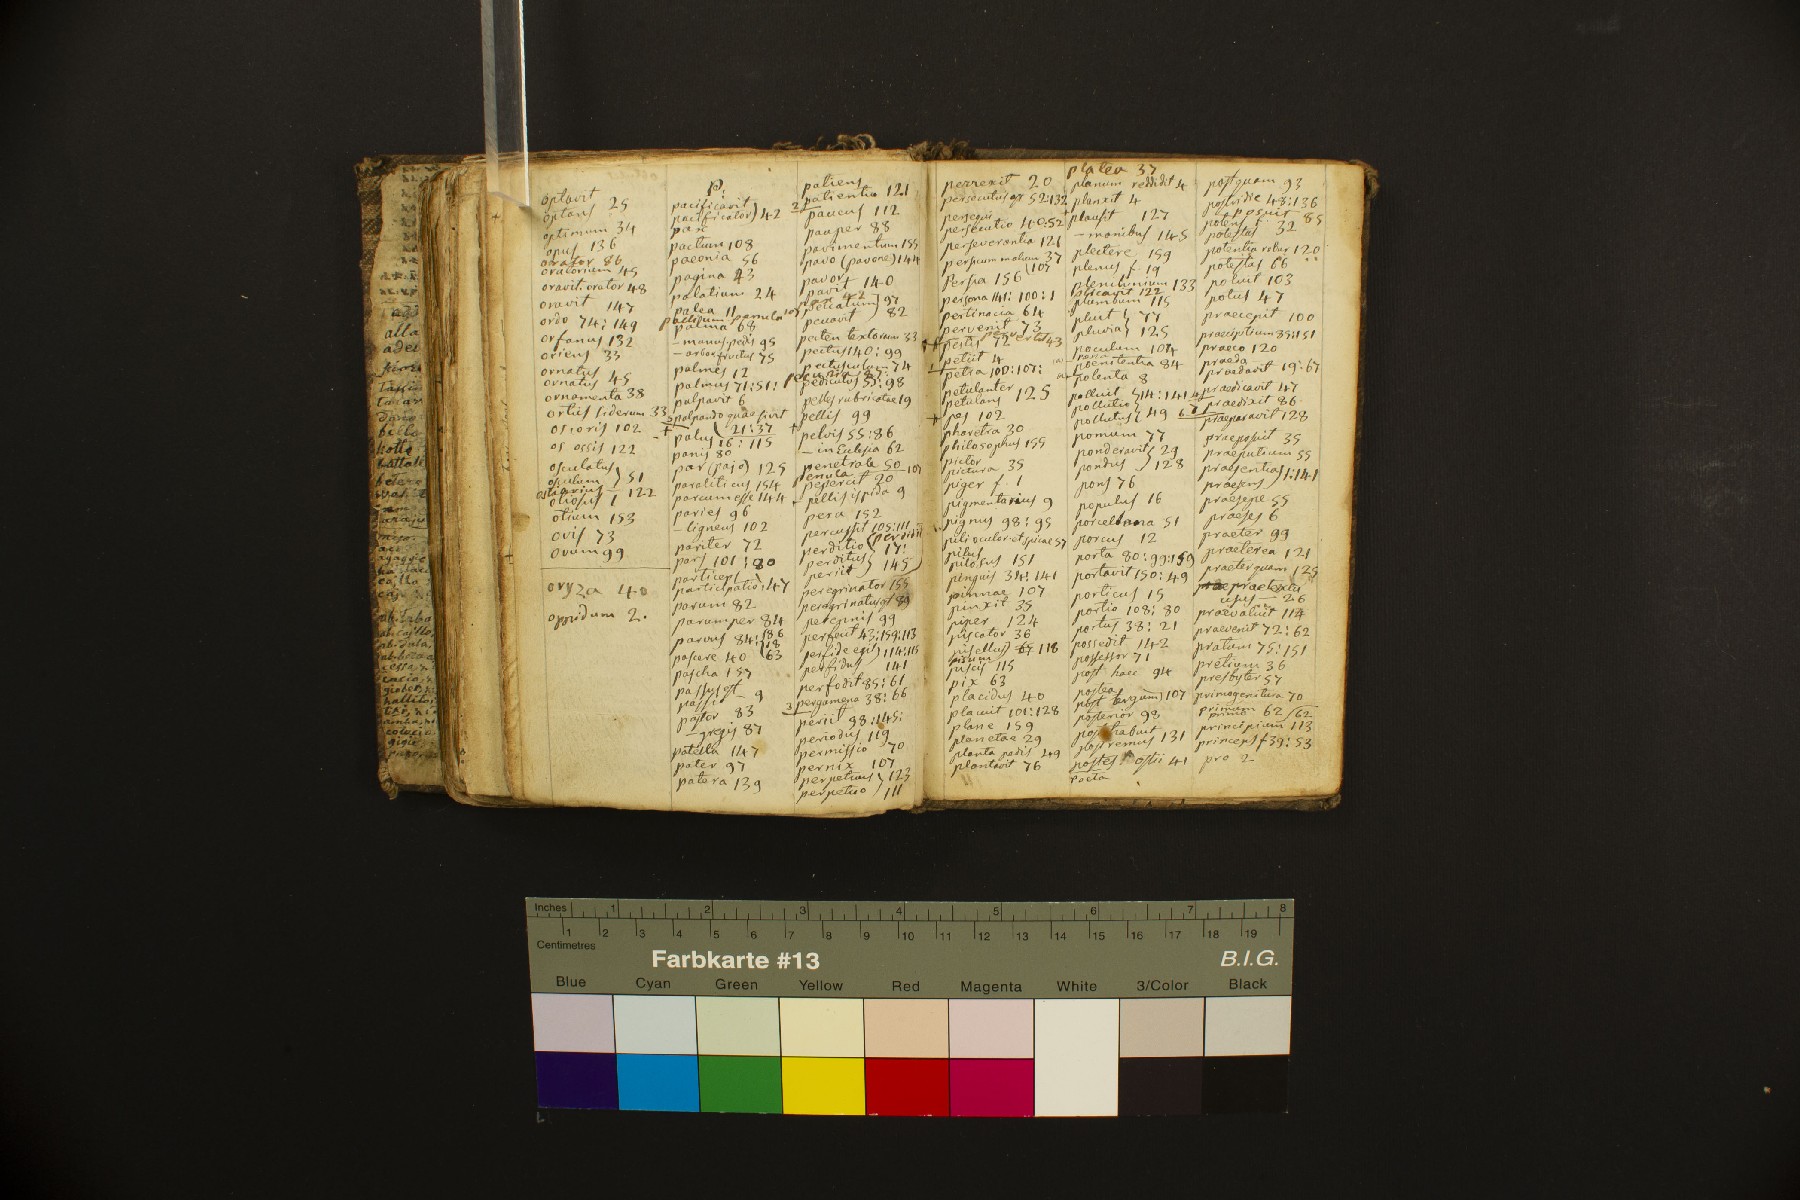 optavit 25
optans
optimum 34
opus 136
orator 86
oratorium 45
oravit. orator 48
oravit 147
ordo 74: 149
orfanus 132
oriens 33
ornatus
ornatus 45
ornamenta 38
ortus siderum 33
os oris 102
os ossis 122
osculatus
osculum } 51
ostiarius 122
otiosus 1
otium 153
ovis 73
ovum 99
oryza 40
oppidum 2.
P.
pacificavit
pacificator } 42
pax
pactum 108
paeonia 56
pagina 43
palatium 24
palea 11
palma 68
- manus pedis 95
- arbor fructus 75
palmes 12
palmus 71: 51:
palpavit 6
palpando quaesivit
21: 37
palus 16: 115
panis 80
par (pajo) 125
paraliticus 154
parcum esse 144
paries 96
- ligneus 102
pariter 72
pars 101: 80
particeps
participatio } 47
parum 82
parumper 84
parvus 84: 186
pascere 40 63
pascha 157
passus est
passio 9
pastor 83
- gregis 87
patella 147
pater 97
patera 139
patiens
patientia 121
pavens 112
pauper 88
pavimentum 155
pavo (pavone) 144
pavor 140
pavit 42
peccatum
peccavit } 97
82
pecten textorum 33
pectus 140: 99
pectusculum 74
pediculus 55: 98
pelles rubricatae 19
pellis 99
pelvis 55: 86
- in Eclesia 62
penetrale 50
penula 107
pepercit 20
pellis ispida 9
pera 152
percussit 105: 111
perditio (perdidit
perditus } 17:
periit } 145
peregrinator 155
peregrinatus est 80
perennis 99
perfecit 43: 159: 113
perfide egit } 114: 115
perfidus 141
perfodit 85: 61
pergamena 38: 66
periit 98: 145:
periodus 119
permissio 70
pernix 107
perpetuus } 123
perpetuo } 111
perrexit 20
persecutus est 52: 132
persequi
persecutio 40: 52
perseverantia 121
persicum malum 37
Persia 156 107
persona 141: 100: 1
pertinacia 64
pervenit 73
pervertit 43
pestis 72
petiit 4
petra 100: 107:
petulanter
petulans 125
pes 102
pharetra 30
philosophus 155
pictor
pictura 35
piger f. 1
pigmentarius 9
pignus 98: 95
pili oculor. et spicae 57
pilus
pilosus 151
pinguis 34: 141
pinnae 107
pinxit 35
piper 124
piscator 36
pisellus 65 118
pisum
piscis 115
pix 63
placidus 40
placuit 101: 128
plane 159
planetae 29
planta pedis 49
plantavit 76
platea 37
planum reddidit 4
planxit 4
plausit 127
- manibus 145
plectere 159
plenus f. 19
plenilunium 133
plicavit 122
plumbum 115
pluit } 77
pluvia } 125
poculum 104
poena
poenitentia 84
polenta 8
polluit
pollutio } 14: 141
pollutus } 49
pomum 77
ponderavit } 29
pondus } 128
pons 76
populus 16
porcellana 51
porcus 12
porta 80: 99: 159
portavit 150: 49
porticus 15
portio 108: 80
portus 38: 21
possedit 142
possessor 71
post haec 94
postea
post tergum } 107
posterior 98
posthabuit
postremus 131
postes ostii 41
porta
postquam 93
postridie 43: 136
posuit 85
potens f.
potestas 32
potentia robur 120
potestas 66
potuit 103
potus 47
praecepit 100
praecipitium 85: 151
praeco 120
praeda
praedavit 19: 67
praedicavit 47
praedixit 86
praeparavit 128
praeposuit 35
praeputium 55
praesentia } 1: 141
praesens
praesepe 55
praeses 6
praeter 99
praeterea 121
praeterquam 125
praetextu
usus - 26
praevaluit 114
praevenit 72: 62
pratum 75: 151
pretium 36
presbyter 57
primogenitura 70
primum
primus 62 / 62
principium 113
princeps f 39: 53
pro 2
Inches 1 2 3 4 5 6 7 8
1 2 3 4 5 6 7 8 9 10 11 12 13 14 15 16 17 18 19
Centimetres
Farbkarte #13
B.I.G.
Blue Cyan Green Yellow Red Magenta White 3/Color Black